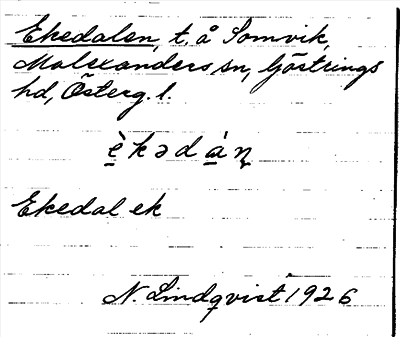 Ekedalen, t. å Somvik,
Malexanders sn, Göstrings
hd, Österg. l.
è̱kədà̱ṇ
Ekedal ek
N. Lindqvist 1926